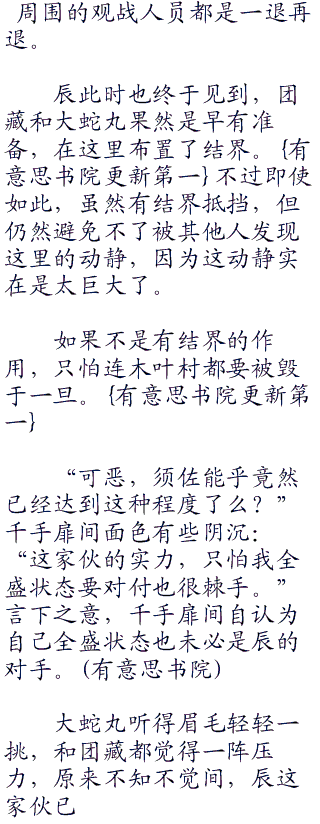 周围的观战人员都是一退再
退。
辰此时也终于见到，团
藏和大蛇丸果然是早有准
备，在这里布置了结界。{有
意思书院更新第一}不过即使
如此，虽然有结界抵挡，但
仍然避免不了被其他人发现
这里的动静，因为这动静实
在是太巨大了。
如果不是有结界的作
用，只怕连木叶村都要被毁
于一旦。{有意思书院更新第
一}
“可恶，须佐能乎竟然
已经达到这种程度了么？”
千手扉间面色有些阴沉：
“这家伙的实力，只怕我全
盛状态要对付也很棘手。”
言下之意，千手扉间自认为
自己全盛状态也未必是辰的
对手。(有意思书院)
大蛇丸听得眉毛轻轻一
挑，和团藏都觉得一阵压
力，原来不知不觉间，辰这
家伙已